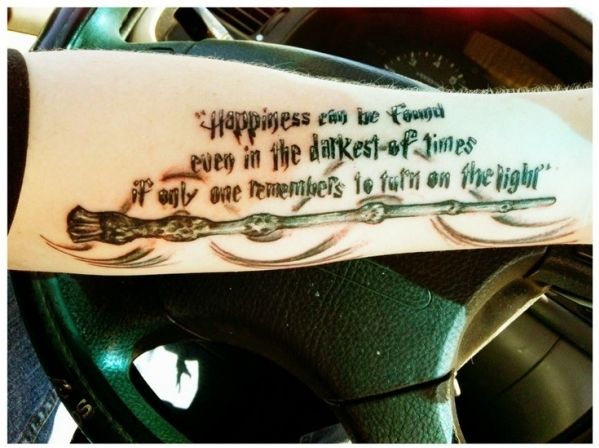 "Happiness can be found
even in the darkest of times
if only one remembers to turn on the light"